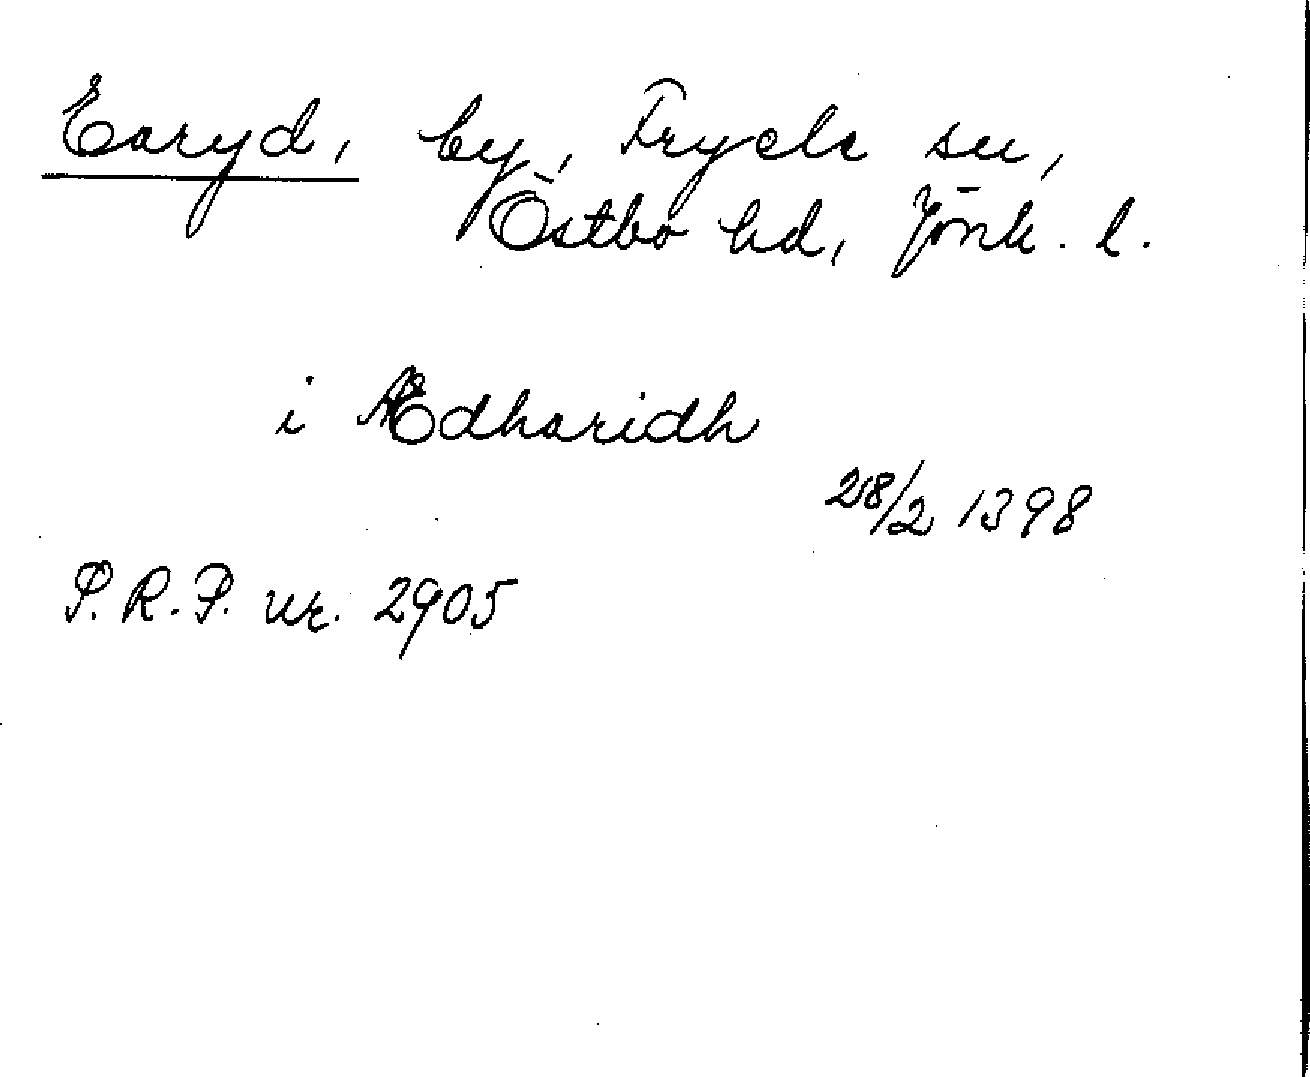 Earyd, by, Tryde sn,
Östbo hd, Jönk. l.
i Ædharidh
28/2 1398
P.R.P. nr. 2905